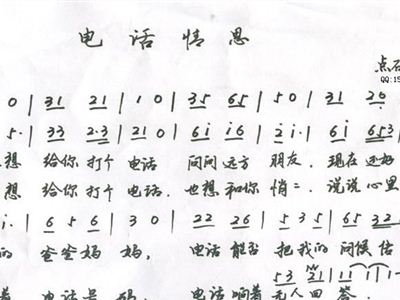 电话情思
点石
QQ:15
0 | 31 21 | 1 0 | 35 65 | 5 0 | 31 26
5· | 33 2·3 | 21 0 | 6i i6 | 2 i· | 6i 653
想 给你 打个 电话 问问 远方 朋友, 现在 还好
想 给你 打个 电话, 也想 和你 悄々, 说说 心里
i· | 6 5 6 | 3 0 | 22 26 | 5 3 5 | 65 32
的 爸爸 妈妈, 电话 能否 把我的 问候 信
53 21 | 11
着 电话 号码, 电话 响着 无人 回答